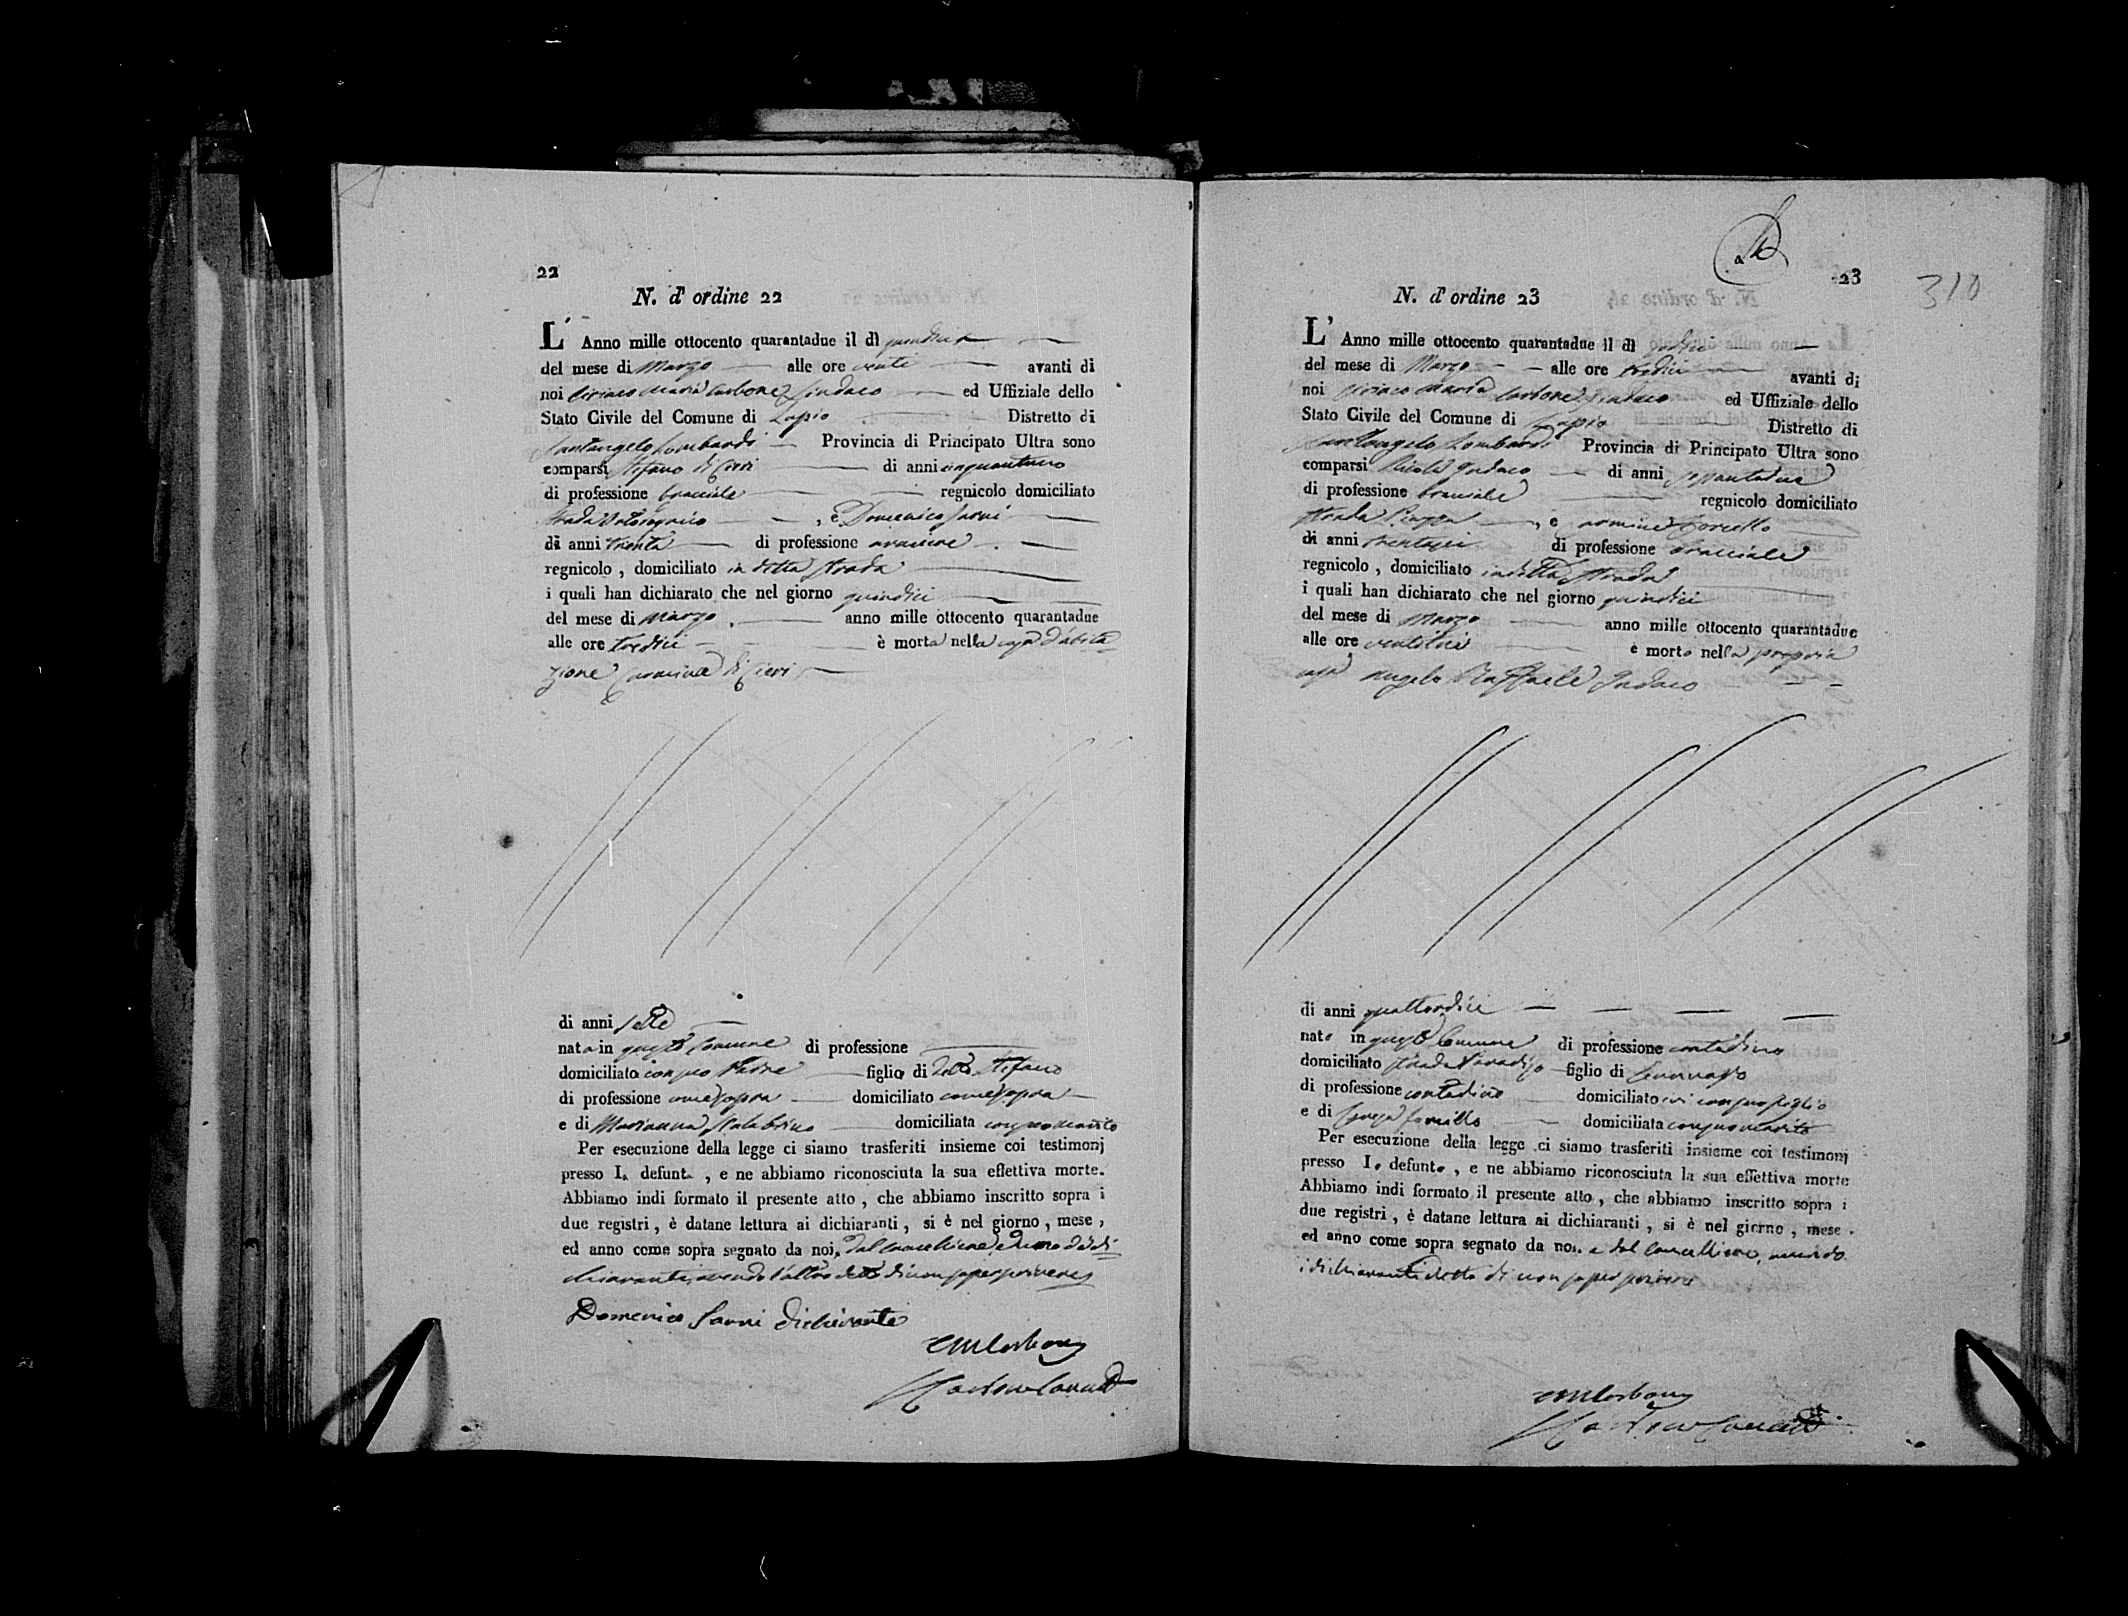 22
N. d' ordine 22
L' Anno mille ottocento quarantadue il dì quindici
del mese di Marzo alle ore venti avanti di
noi Ciriaco Maria Carbone Sindaco ed Uffiziale dello
Stato Civile del Comune di Lapio Distretto di
Santangelo Lombardi Provincia di Principato Ultra sono
comparsi Stefano di Cieri di anni cinquantuno
di professione bracciale regnicolo domiciliato
strada , e Domenico Sarni
di anni trenta di professione
regnicolo , domiciliato in detta strada
i quali han dichiarato che nel giorno quindici
del mese di Marzo anno mille ottocento quarantadue
alle ore tredici è morta nella casa d'abita
zione Carmina di Cieri
di anni sette
nata in questo Comune di professione
domiciliata con suo Padre figlia di detto Stefano
di professione come sopra domiciliato come sopra
e di Marianna domiciliata con suo marito
Per esecuzione della legge ci siamo trasferiti insieme coi testimonj
presso la defunta , e ne abbiamo riconosciuta la sua effettiva morte.
Abbiamo indi formato il presente atto , che abbiamo inscritto sopra i
due registri , è datane lettura ai dichiaranti , si è nel giorno , mese ,
ed anno come sopra segnato da noi, dal Cancelliere, ed uno de' di
chiaranti, avendo l'altro detto di non saper scrivere
Domenico Sarni dichiarante
CMCarbone
23
310
N. d' ordine 23
L' Anno mille ottocento quarantadue il dì sedici
del mese di Marzo alle ore tredici avanti di
noi Ciriaco Maria Carbone Sindaco ed Uffiziale dello
Stato Civile del Comune di Lapio Distretto di
Santangelo Lombardi Provincia di Principato Ultra sono
comparsi Nicola di anni settantadue
di professione bracciale regnicolo domiciliato
strada Piazza , e
di anni trentasei di professione bracciale
regnicolo , domiciliato in detta strada
i quali han dichiarato che nel giorno quindici
del mese di Marzo anno mille ottocento quarantadue
alle ore ventitrè è morto nella propria
casa Angelo Raffaele
di anni quattordici
nato in questo Comune di professione contadino
domiciliato strada Paradiso figlio di
di professione contadino domiciliato ivi con suo figlio
e di domiciliata con suo marito
Per esecuzione della legge ci siamo trasferiti insieme coi testimonj
presso lo defunto , e ne abbiamo riconosciuta la sua effettiva morte
Abbiamo indi formato il presente atto , che abbiamo inscritto sopra i
due registri , è datane lettura ai dichiaranti , si è nel giorno , mese .
ed anno come sopra segnato da noi e dal Cancelliere, avendo
i dichiaranti detto di non saper scrivere
CMCarbone